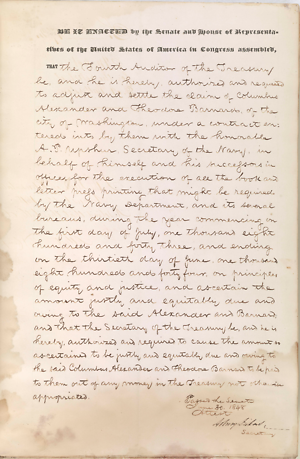 BE IT ENACTED by the Senate and House of Representa-
tives of the United States of America in Congress assembled,
THAT the Fourth Auditor of the Treasury
be, and he is hereby, authorized and required
to adjust and settle the claim of Columbus
Alexander and Theodore Barnard, of the
city of Washington, under a contract en-
tered into, by them with the honorable
A. P. Upshur Secretary of the Navy, in
behalf of himself and his successors in
office, for the execution of all the book and
letter press printing that might be required
by the Navy Department, and its several
bureaus, during the year commencing on
the first day of July, one thousand eight
hundred and forty three, and ending
on the thirtieth day of June, one thousand
eight hundred and forty four, on principles
of equity and justice, and ascertain the
amount justly and equitably, due and
owing to the said Alexander and Barnard,
and that the Secretary of the Treasury be, and he is
hereby, authorized and required to cause the amount so
ascertained to be justly and equitably due and owing to
the said Columbus Alexander and Theodore Barnard to be paid
to them out of any money in the Treasury not otherwise
appropriated.
the Senate
June 30
Attest